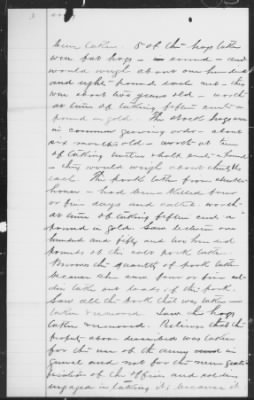 been taken. 5 of the hogs taken
were fat hogs – sound – and
would weigh about one hundred
and eighty pounds each net. They
was about two years old – worth
at time of taking fifteen cents a
pound in gold. The stock hogs were
in common growing order – about
six months old – worth at time
of taking twelve cents a pound
– they would weigh about thirty lbs
each. The pork taken from smoke
house – had been killed four
or five days and salted. worth
at time of taking fifteen cents a
pound in gold. Saw between one
hundred and fifty and two hundred
pounds of the salt pork taken.
Knows the quantity of pork taken
because she saw four or five
taken out loads of the pork.
Saw all the pork that was taken –
taken &amp; removed. Saw the hogs
taken &amp; removed. Believes that the
property above described was taken
for the use of the army and in
general and not for the mere grati-
fication of the officers and soldiers
engaged in taking it; because it